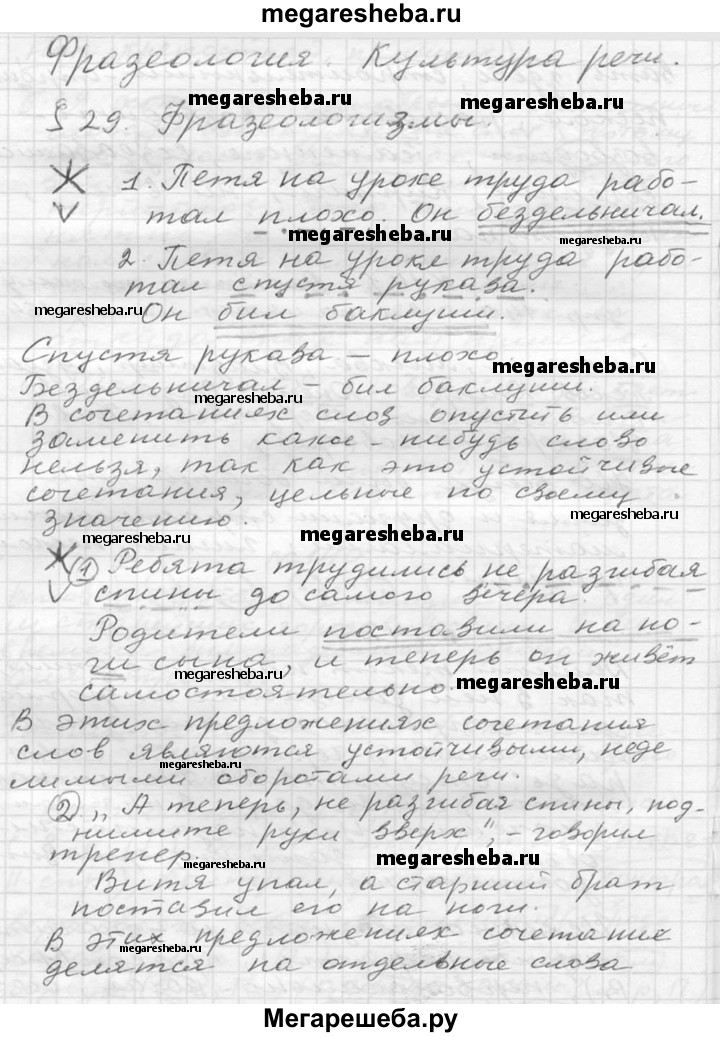 megaresheba.ru
Фразеология. Культура речи.
megaresheba.ru megaresheba.ru
§ 29. Фразеологизмы.
1. Петя на уроке труда рабо-
megaresheba.ru
тал плохо. Он бездельничал.
megaresheba.ru megaresheba.ru
2. Петя на уроке труда рабо-
тал спустя рукава.
megaresheba.ru
Он бил баклуши.
Спустя рукава – плохо.
megaresheba.ru
Бездельничал – бил баклуши.
megaresheba.ru
В сочетаниях слов опустить или
заменить какое-нибудь слово
нельзя, так как это устойчивые
сочетания, цельные по своему
megaresheba.ru
значению.
megaresheba.ru
1 Ребята трудились не разгибая
спины до самого вечера.
Родители поставили на но-
ги сына, и теперь он живёт
megaresheba.ru megaresheba.ru
самостоятельно.
В этих предложениях сочетания
слов являются устойчивыми, неде
megaresheba.ru
лимыми оборотами речи.
2 „А теперь, не разгибая спины, под-
нимите руки вверх", – говорил
тренер.
megaresheba.ru megaresheba.ru
Витя упал, а старший брат
поставил его на ноги.
В этих предложениях сочетание
megaresheba.ru
делятся на отдельные слова
Мегарешеба.ру